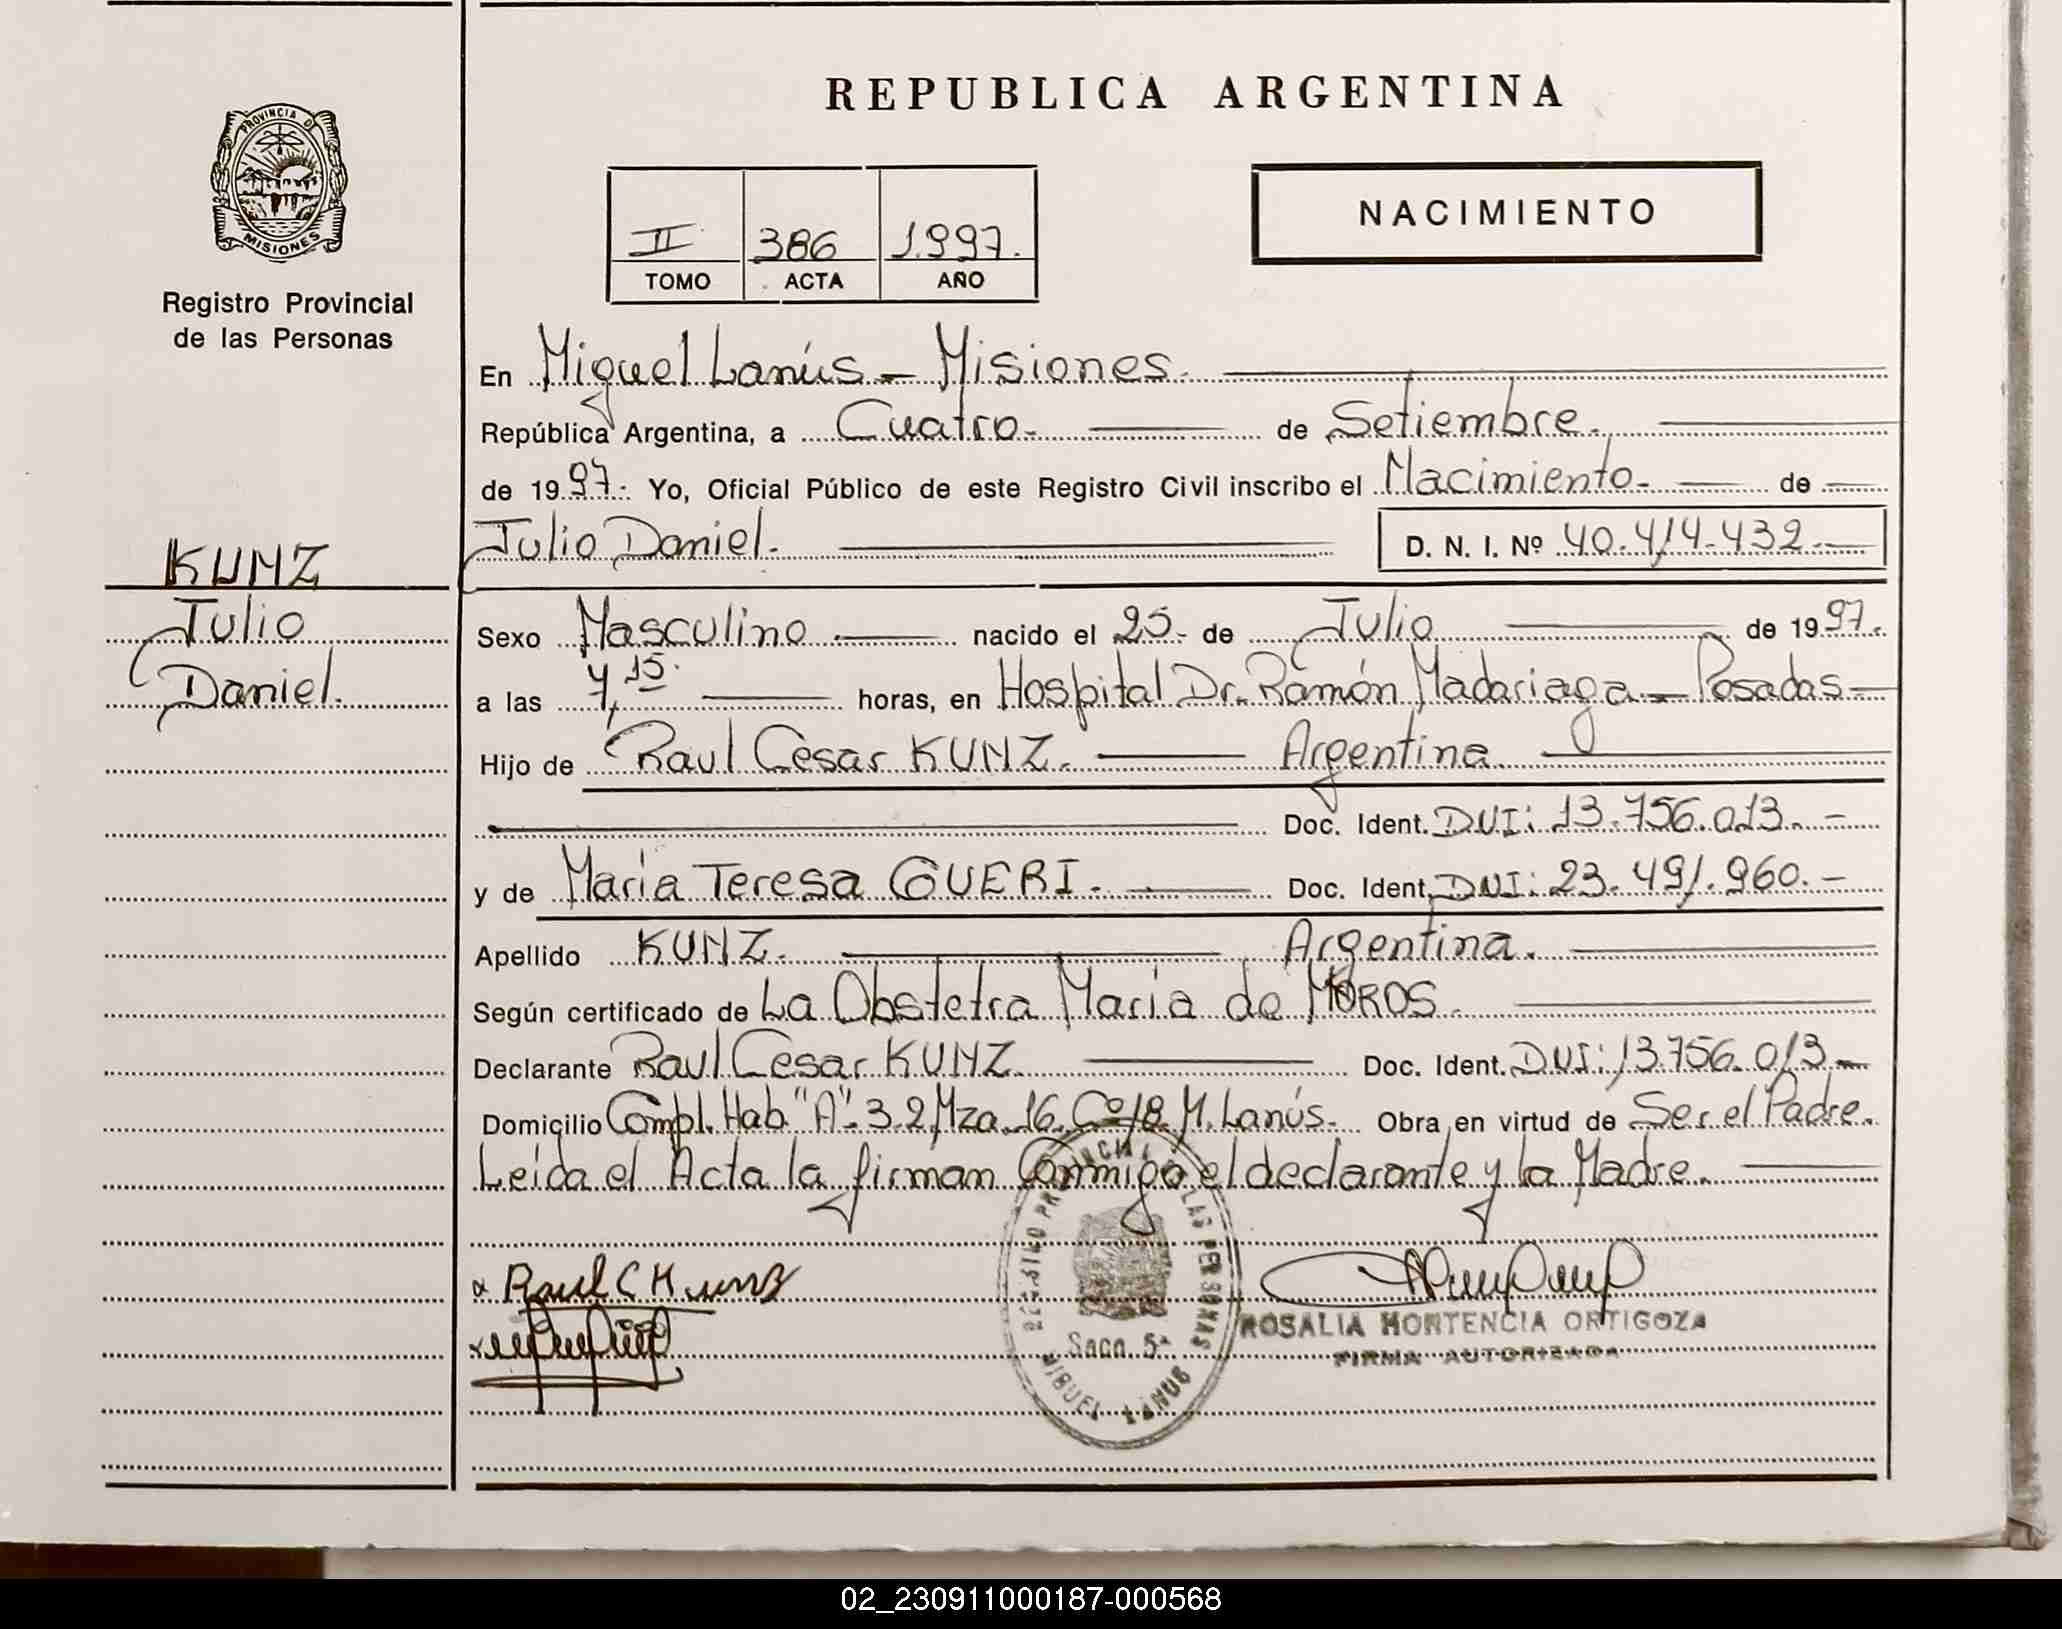 REPUBLICA ARGENTINA
PROVINCIA DE
MISIONES
Registro Provincial
de las Personas
II 386 1.997.
TOMO ACTA AÑO
NACIMIENTO
En Miguel Lanús - Misiones.
República Argentina, a Cuatro. de Setiembre.
de 1997. Yo, Oficial Público de este Registro Civil inscribo el Nacimiento. de
Julio Daniel. D. N. I. Nº 40.414.432.
KUNZ
Julio
Daniel.
Sexo Masculino nacido el 25. de Julio de 1997.
a las 4,15. horas, en Hospital Dr. Ramón Madariaga - Posadas
Hijo de Raul Cesar KUNZ. Argentina
Doc. Ident. DNI: 13.756.013. -
y de Maria Teresa GUERI. Doc. Ident. DNI: 23.491.960. -
Apellido KUNZ. Argentina.
Según certificado de La Obstetra Maria de MOROS.
Declarante Raul Cesar KUNZ. Doc. Ident. DNI: 13.756.013
Domicilio Compl. Hab "A". 32 Mza. 16. Cº 18 M. Lanús. Obra en virtud de Ser el Padre.
Leida el Acta la firman Conmigo el declarante y la Madre.
Raul C Kunz
ROSALIA HORTENCIA ORTIGOZA
FIRMA AUTORIZADA
Secc. 5ª
MIGUEL LANUS
02_230911000187-000568